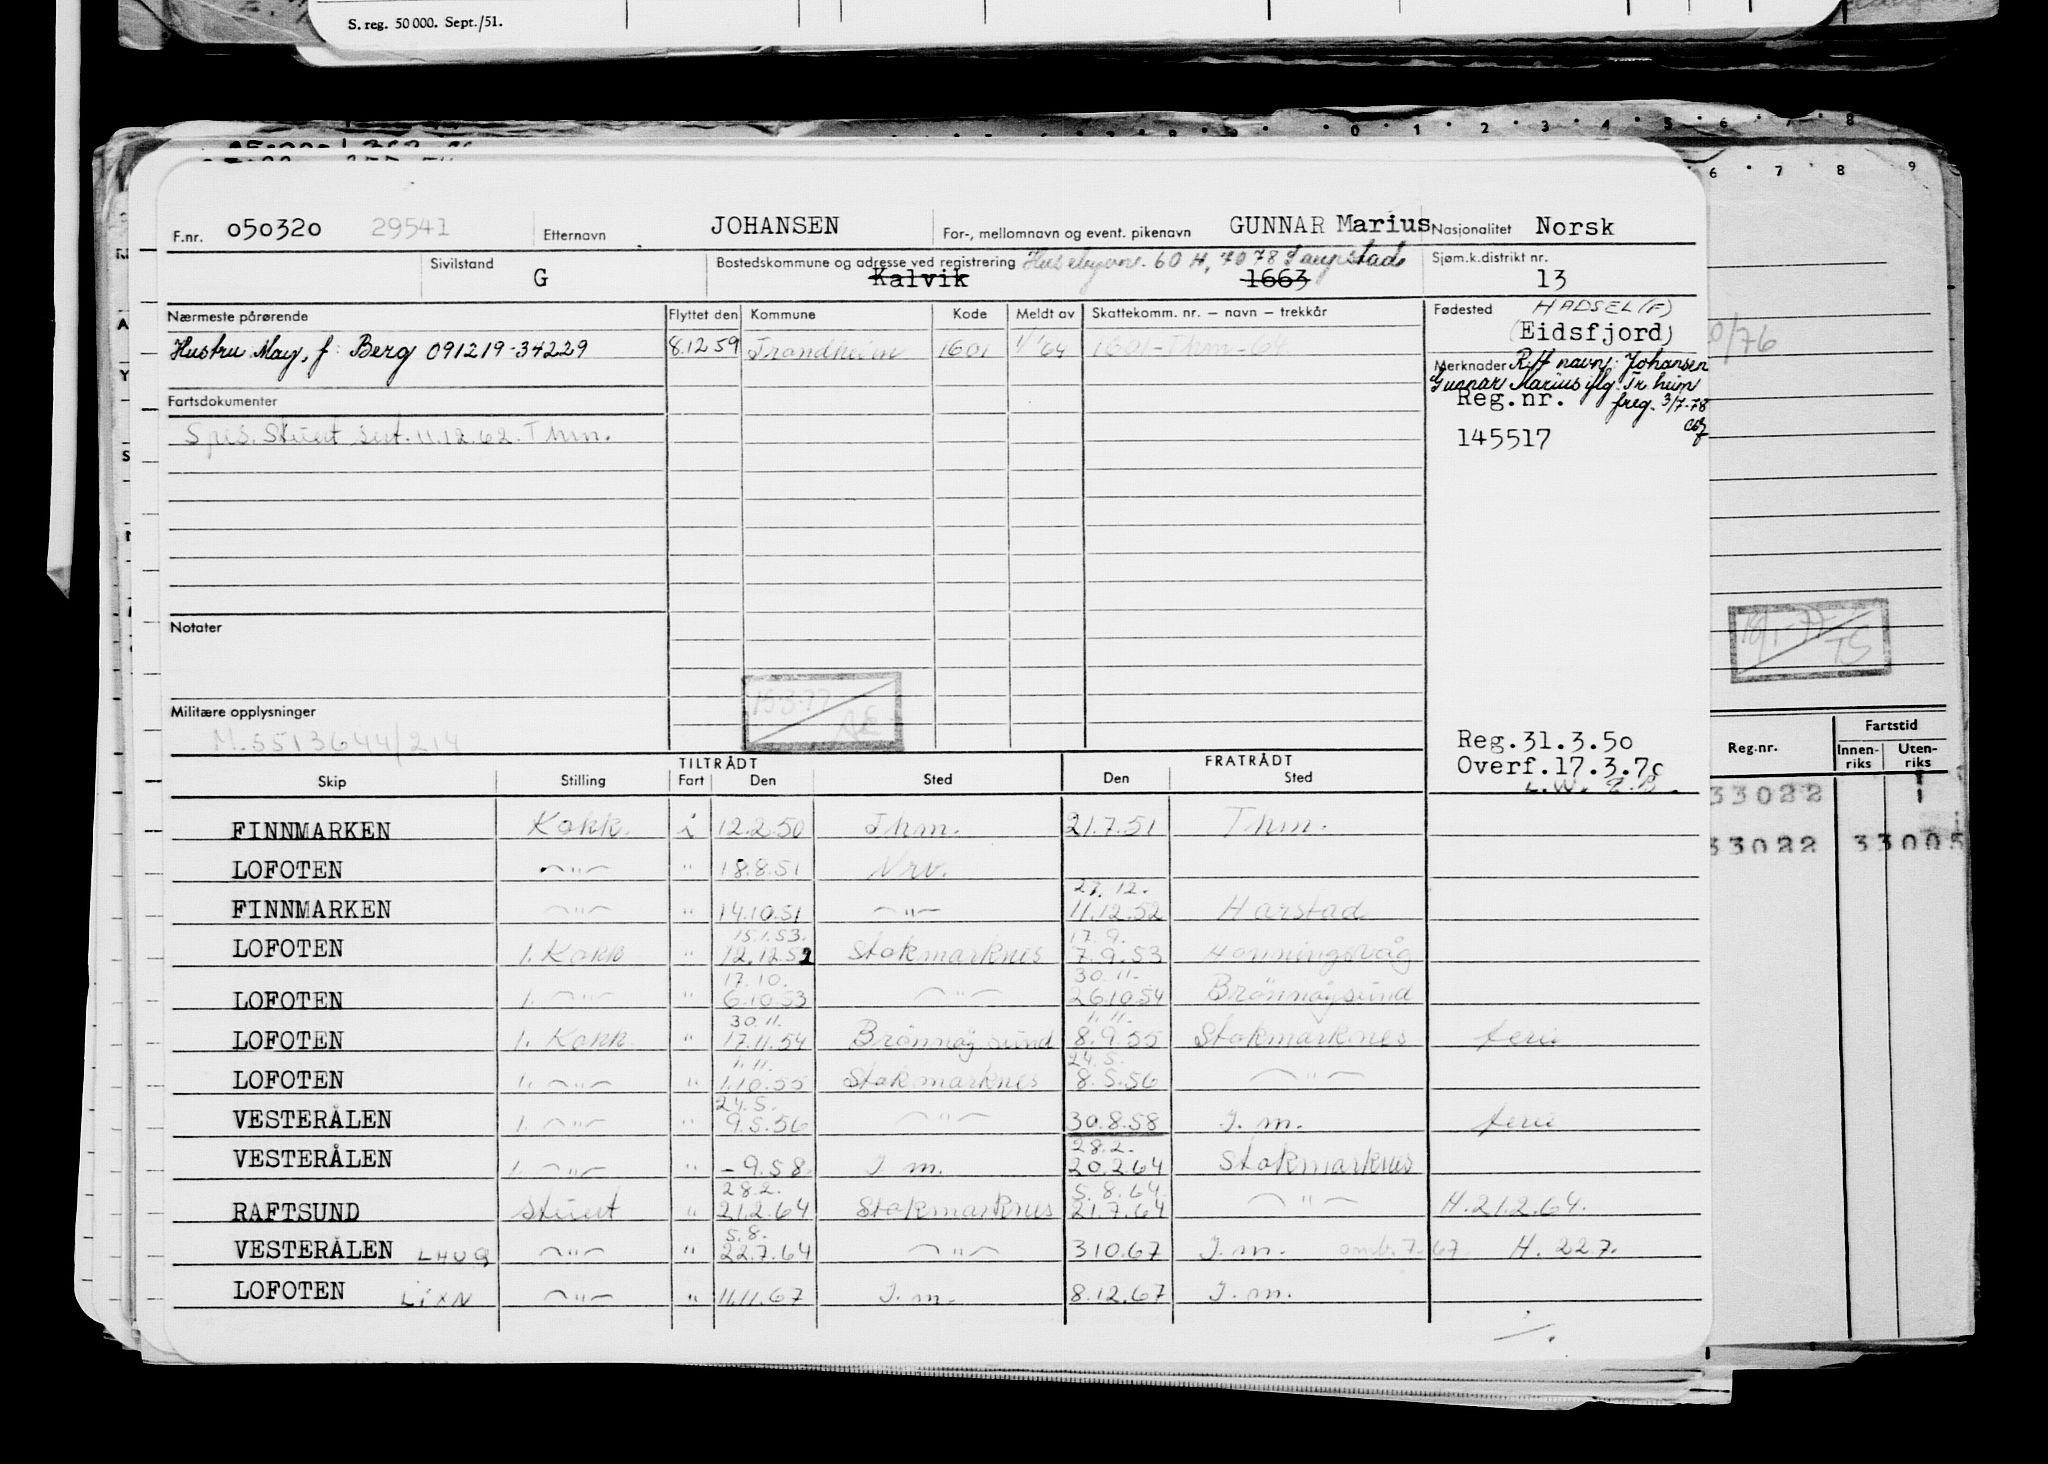 S. reg. 50 000. Sept./51.
F.nr. 050320 29541 Etternavn JOHANSEN For-, mellomnavn og event. pikenavn GUNNAR Marius Nasjonalitet Norsk
Sivilstand G Bostedskommune og adresse ved registrering Kalvik 1663 60 H, 7078 Saupstad Sjøm.k.distrikt nr. 13
Nærmeste pårørende Flyttet den Kommune Kode Meldt av Skattekomm. nr. – navn – trekkår Fødested HADSEL (F)
(Eidsfjord)
Hustru May, f. Berg 091219-34229 8.12.59 Trondheim 1601 1/1'64 1601-Thm-64
Merknader R.H navn: Johansen
Gunnar Marius iflg. Tr.heim
freg. 3/7-78
Fartsdokumenter Reg.nr.
Spes. Stuert sert. 11.12.62. Thm. 145517
Notater
15.3.77
Militære opplysninger
M.5513644/214
Reg.31.3.50
Overf.17.3.70
TILTRÅDT FRATRÅDT
Skip Stilling Fart Den Sted Den Sted
FINNMARKEN Kokk i 12.2.50 Thm. 21.7.51 Thm.
LOFOTEN —"— " 18.8.51 Nrv.
27.12.
FINNMARKEN —"— " 14.10.51 —"— 11.12.52 Harstad
15.1.53. 17.9.
LOFOTEN 1. Kokk " 12.12.52 Stokmarknes 7.9.53 Honningsvåg
17.10. 30.11.
LOFOTEN 1. —"— " 6.10.53 —"— 26.10.54 Brønnøysund
30.11. 1.11.
LOFOTEN 1. Kokk " 17.11.54 Brønnøysund 8.9.55 Stokmarknes ferie
1.11. 24.5.
LOFOTEN 1. —"— " 1.10.55 Stokmarknes 8.5.56 —"—
24.5.
VESTERÅLEN 1. —"— " 9.5.56 —"— 30.8.58 I.m. ferie
28.2.
VESTERÅLEN 1. —"— " –9.58. I m. 20.2.64 Stokmarknes
28.2. 5.8.64.
RAFTSUND stuert " 21.2.64 Stokmarknes 21.7.64 —"— H.21.2.64.
5.8.
VESTERÅLEN LHUQ —"— " 22.7.64 —"— 310.67 I.m. omb.7.67 H. 22.7.
LOFOTEN LIXN —"— " 11.11.67 I.m. 8.12.67 I.m.
Reg.nr. Fartstid
Innenriks Utenriks
33022 1
33022 33005
0/76